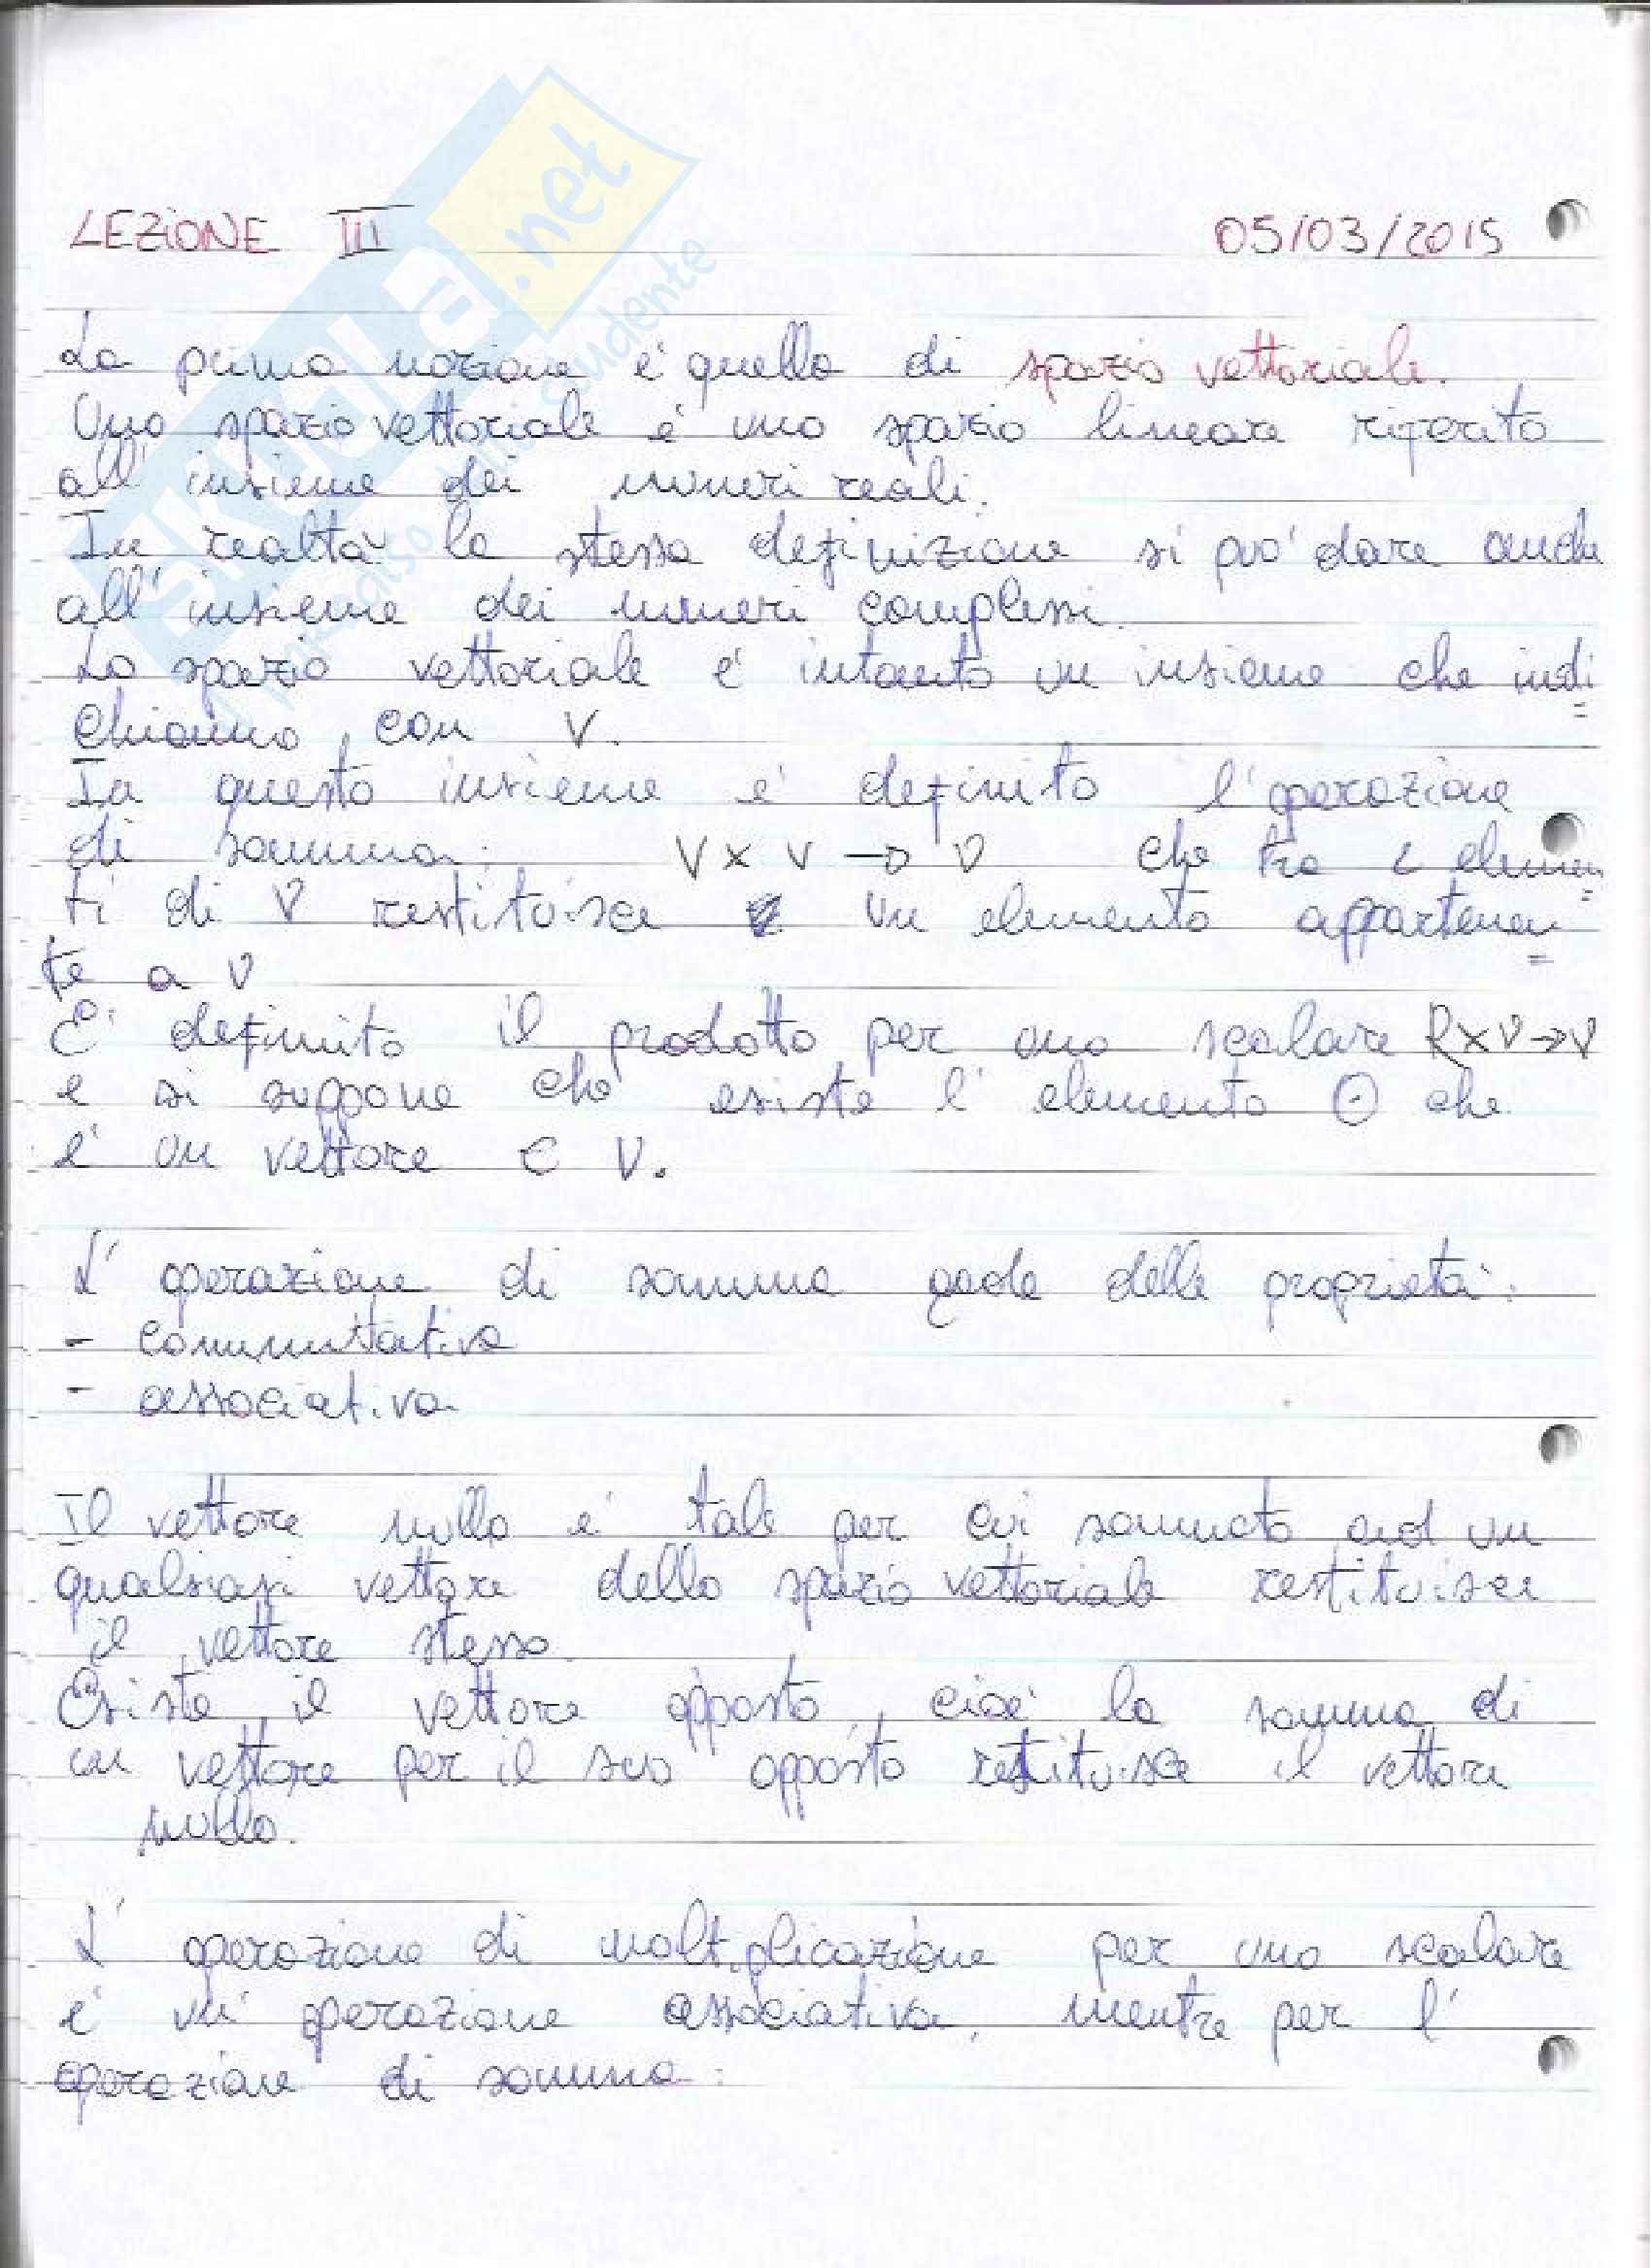 LEZIONE III 05/03/2015
La prima nozione e' quella di spazio vettoriale.
Uno spazio vettoriale e' uno spazio lineare riferito
all'insieme dei numeri reali.
In realtà la stessa definizione si puo' dare anche
all'insieme dei numeri complessi.
Lo spazio vettoriale e' intanto un insieme che indi
chiamo con V.
In questo insieme e' definito l'operazione
di somma: V x V → V che tra 2 elemen
ti di V restituisce un elemento appartenen
te a V
E' definito il prodotto per uno scalare R x V → V
e si suppone che esiste l'elemento ⊙ che
e' un vettore ∈ V.
L'operazione di somma gode delle proprietà:
- commutativa
- associativa
Il vettore nullo e' tale per cui sommato ad un
qualsiasi vettore dello spazio vettoriale restituisce
il vettore stesso.
Esiste il vettore opposto, cioe' la somma di
un vettore per il suo opposto restituisce il vettore
nullo.
L'operazione di moltiplicazione per uno scalare
e' un' operazione associativa, mentre per l'
operazione di somma:
skuola.net
il paradiso dello studente